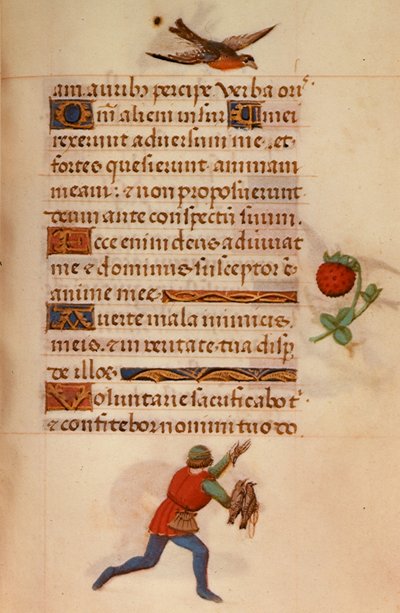 am auribꝫ percipe verba oris
Qm̄ alieni insur mei
rexerunt adversum me et
fortes quesierunt animam
meam: ⁊ non proposuerunt
deum ante conspectū suum.
Ecce enim deus adiuuat
me ⁊ dominus susceptor ē
anime mee
Auerte mala inimicis
meis. ⁊ in veritate tua disp̄
de illos
Voluntarie sacrificabo t
⁊ confitebor nomini tuo do